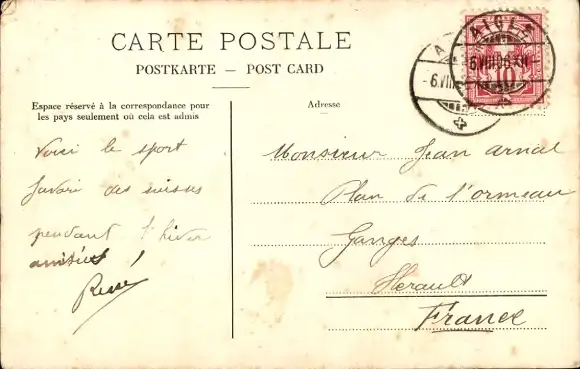 CARTE POSTALE
POSTKARTE — POST CARD
Espace réservé à la correspondance pour
les pays seulement où cela est admis
Adresse
Voici le sport
favori des suisses
pendant l'hiver
amitiés !
Monsieur Jean Arnal
Plan de l'ormeau
Ganges
Hérault
France
AIGLE
6.VIII.06.XII
10